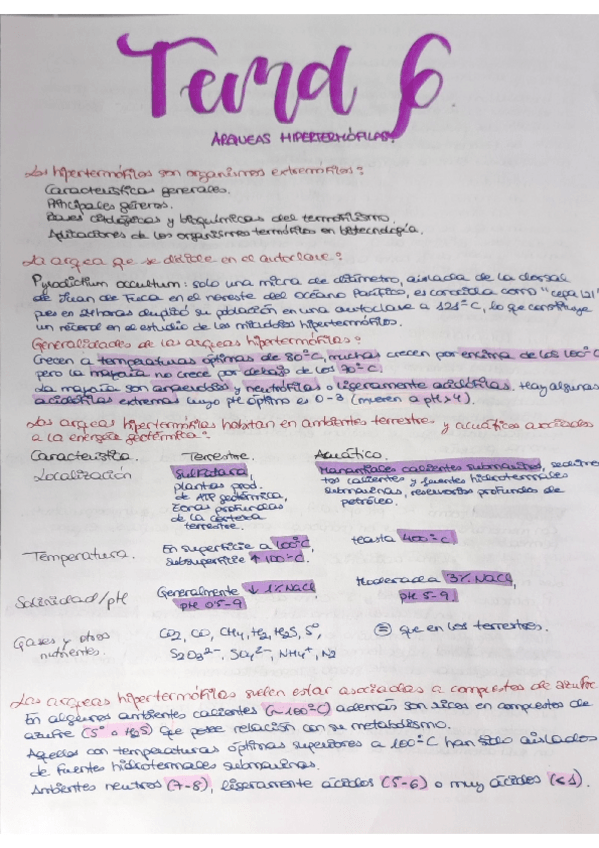 Tema 6
ARQUEAS HIPERTERMÓFILAS.
Los hipertermófilos son organismos extremófilos:
Características generales.
Principales géneros.
Bases fisiológicas y bioquímicas del termofilismo.
Aplicaciones de los organismos termófilos en biotecnología.
La arquea que se divide en el autoclave:
Pyrodictium occultum: solo una micra de diámetro, aislada de la dorsal
de Juan de Fuca en el noreste del Océano Pacífico, es conocida como "cepa 121"
pues en 24 horas duplicó su población en una autoclave a 121°C, lo que constituye
un récord en el estudio de los microbios hipertermófilos.
Generalidades de las arqueas hipertermófilas:
Crecen a temperaturas óptimas de 80°C, muchas crecen por encima de los 100°C
pero la mayoría no crece por debajo de los 90°C.
La mayoría son anaerobios y neutrófilas o ligeramente acidófilas. Hay algunas
acidófilas extremas cuyo pH óptimo es 0-3 (mueren a pH>4).
Las arqueas hipertermófilas habitan en ambientes terrestres y acuáticos asociados
a la energía geotérmica:
Característica. Terrestre. Acuático.
Localización Sulfatara, Manantiales calientes submarinos, sedimen
plantas prod. tos calientes y fuentes hidrotermales
de ATP geotérmica, submarinas, reservorios profundos de
zonas profundas petróleo.
de la corteza
terrestre.
Temperatura. En superficie a 100°C, Hasta 400°C.
Subsuperficie ↑ 100°C.
Salinidad/pH Generalmente ↓ 1% NaCl, Moderada 3% NaCl,
pH 0'5-9. pH 5-9.
Gases y otros CO2, CO, CH4, H2, H2S, S°, = que en los terrestres.
nutrientes. S2O3²⁻, SO4²⁻, NH4⁺, N2
Las arqueas hipertermófilas suelen estar asociadas a compuestos de azufre
En algunos ambientes calientes (~100°C) además son ricos en compuestos de
azufre (S° o H2S) que posee relación con su metabolismo.
Aquellos con temperaturas óptimas superiores a 100°C han sido aislados
de fuentes hidrotermales submarinas.
Ambientes neutros (7-8), ligeramente ácidos (5-6) o muy ácidos (<1).